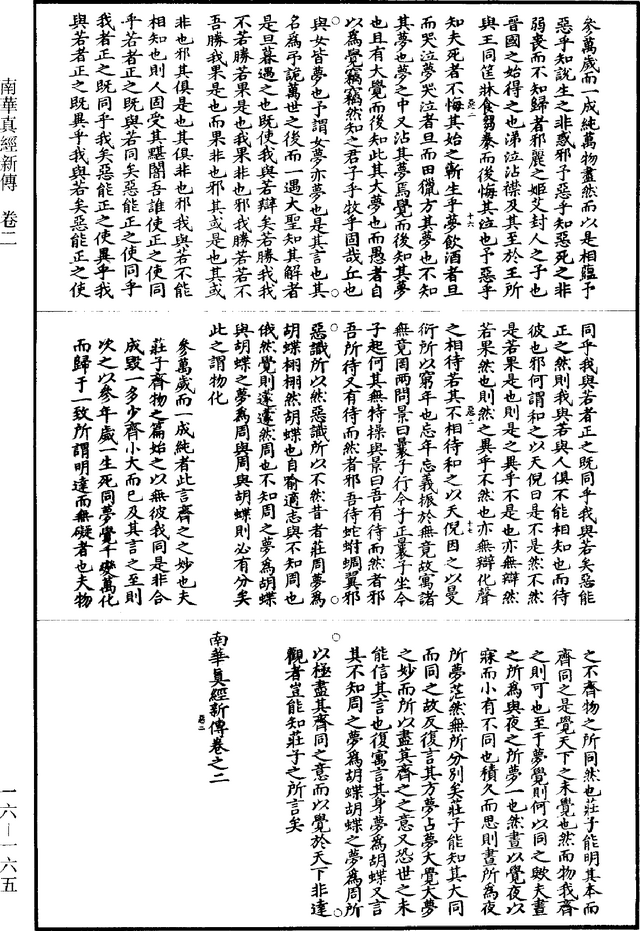 南華真經新傳　卷二
一六—一六五
參萬歲而一成純萬物盡然而以是相蘊予
惡乎知說生之非惑邪予惡乎知惡死之非
弱喪而不知歸者邪麗之姬艾封人之子也
晉國之始得之也涕泣沾襟及其至於王所
與王同筐牀食芻豢而後悔其泣也予惡乎
知夫死者不悔其始之蘄生乎夢飲酒者旦
而哭泣夢哭泣者旦而田獵方其夢也不知
其夢也夢之中又沾其夢焉覺而後知其夢
也且有大覺而後知此其大夢也而愚者自
以為覺竊竊然知之君子乎牧乎固哉丘也
與女皆夢也予謂女夢亦夢也是其言也其
名為弔詭萬世之後而一遇大聖知其解者
是旦暮遇之也既使我與若辯矣若勝我我
不若勝若果是也我果非也邪我勝若若不
吾勝我果是也而果非也邪其或是也其或
非也邪其俱是也其俱非也邪我與若不能
相知也則人固受其黮闇吾誰使正之使同
乎若者正之既與若同矣惡能正之使同乎
我者正之既同乎我矣惡能正之使異乎我
與若者正之既異乎我與若矣惡能正之使
同乎我與若者正之既同乎我與若矣惡能
正之然則我與若與人俱不能相知也而待
彼也邪何謂和之以天倪曰是不是然不然
是若果是也則是之異乎不是也亦無辯然
若果然也則然之異乎不然也亦無辯化聲
之相待若其不相待和之以天倪因之以曼
衍所以窮年也忘年忘義振於無竟故寓諸
無竟罔兩問景曰曩子行今子止曩子坐今
子起何其無特操與景曰吾有待而然者邪
吾所待又有待而然者邪吾待蛇蚹蜩翼邪
惡識所以然惡識所以不然昔者莊周夢為
胡蝶栩栩然胡蝶也自喻適志與不知周也
俄然覺則蘧蘧然周也不知周之夢為胡蝶
與胡蝶之夢為周與周與胡蝶則必有分矣
此之謂物化
參萬歲而一成純者此言齊之之妙也夫
莊子齊物之篇始之以無彼我同是非合
成毀一多少齊小大而已及其言之至則
次之以參年歲一生死同夢覺千變萬化
而歸于一致所謂明達而無礙者也夫物
之不齊物之所同然也莊子能明其本而
齊同之是覺天下之未覺也然而物我齊
之則可也至于夢覺則何以同之歟夫晝
之所為與夜之所夢一也然晝以覺夜以
寐而小有不同也積久而思則晝所為夜
所夢茫然無所分別矣莊子能知其大同
而同之故反復言其方夢占夢大覺大夢
之妙而所以盡其齊之之意又恐世之未
能信其言也復寓言其身夢為胡蝶又言
其不知周之夢為胡蝶胡蝶之夢為周所
以極盡其齊同之意而以覺於天下非達
觀者豈能知莊子之所言矣
南華真經新傳卷之二